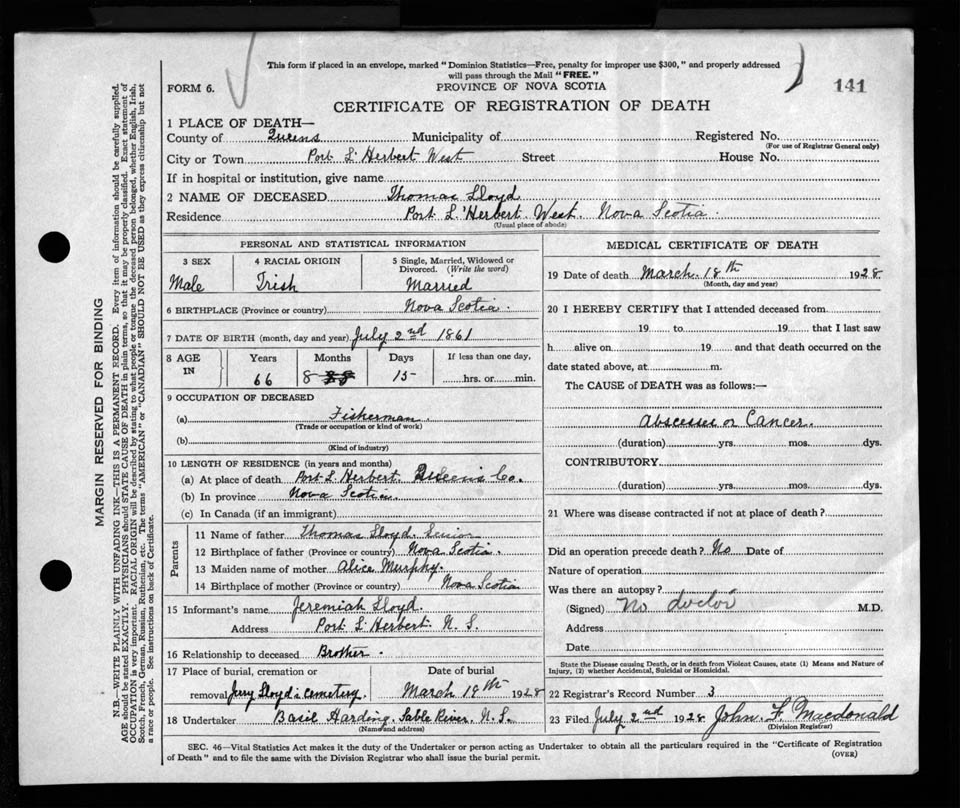 This form if placed in an envelope, marked "Dominion Statistics—Free, penalty for improper use $300," and properly addressed
will pass through the Mail "FREE."
FORM 6.
PROVINCE OF NOVA SCOTIA
141
CERTIFICATE OF REGISTRATION OF DEATH
1 PLACE OF DEATH—
County of Queens Municipality of Registered No.
(For use of Registrar General only)
City or Town Port L'Herbert West Street House No.
If in hospital or institution, give name
2 NAME OF DECEASED Thomas Lloyd
Residence Port L'Herbert West. Nova Scotia.
(Usual place of abode)
PERSONAL AND STATISTICAL INFORMATION
3 SEX 4 RACIAL ORIGIN 5 Single, Married, Widowed or
Divorced. (Write the word)
Male Irish Married
6 BIRTHPLACE (Province or country) Nova Scotia.
7 DATE OF BIRTH (month, day and year) July 2nd 1861
8 AGE Years Months Days If less than one day,
IN 66 8 15 hrs. or min.
9 OCCUPATION OF DECEASED
(a) Fisherman.
(Trade or occupation or kind of work)
(b)
(Kind of industry)
10 LENGTH OF RESIDENCE (in years and months)
(a) At place of death Port L. Herbert. Queens Co.
(b) In province Nova Scotia.
(c) In Canada (if an immigrant)
Parents
11 Name of father Thomas Lloyd. Senior
12 Birthplace of father (Province or country) Nova Scotia.
13 Maiden name of mother Alice Murphy.
14 Birthplace of mother (Province or country) Nova Scotia
15 Informant's name Jeremiah Lloyd.
Address Port L'Herbert. N. S.
16 Relationship to deceased Brother.
17 Place of burial, cremation or Date of burial
removal Jerry Lloyd's Cemetery. March 19th 1928
18 Undertaker Basil Harding. Sable River. N. S.
(Name and address)
MEDICAL CERTIFICATE OF DEATH
19 Date of death March. 18th 1928
(Month, day and year)
20 I HEREBY CERTIFY that I attended deceased from
19 to 19 that I last saw
h alive on 19 and that death occurred on the
date stated above, at m.
The CAUSE of DEATH was as follows:—
Abscesses or Cancer.
(duration) yrs. mos. dys.
CONTRIBUTORY
(duration) yrs. mos. dys.
21 Where was disease contracted if not at place of death?
Did an operation precede death? No Date of
Nature of operation
Was there an autopsy?
(Signed) No doctor M.D.
Address
Date
State the Disease causing Death, or in death from Violent Causes, state (1) Means and Nature of
Injury, (2) whether Accidental, Suicidal or Homicidal.
22 Registrar's Record Number 3
23 Filed July 2nd 1928 John F. Macdonald
(Division Registrar)
SEC. 46—Vital Statistics Act makes it the duty of the Undertaker or person acting as Undertaker to obtain all the particulars required in the "Certificate of Registration
of Death" and to file the same with the Division Registrar who shall issue the burial permit.
(OVER)
MARGIN RESERVED FOR BINDING
N.B.—WRITE PLAINLY WITH UNFADING INK—THIS IS A PERMANENT RECORD. Every item of information should be carefully supplied.
AGE should be stated EXACTLY. PHYSICIANS should STATE CAUSE OF DEATH in plain terms, so that it may be properly classified. Exact statement of
OCCUPATION is very important. RACIAL ORIGIN will be described by stating to what people or tongue the deceased person belonged, whether English, Irish,
Scotch, French, German, Russian, Ruthenian, etc. The terms "AMERICAN" or "CANADIAN" SHOULD NOT BE USED as they express citizenship but not
a race or people. See instructions on back of Certificate.